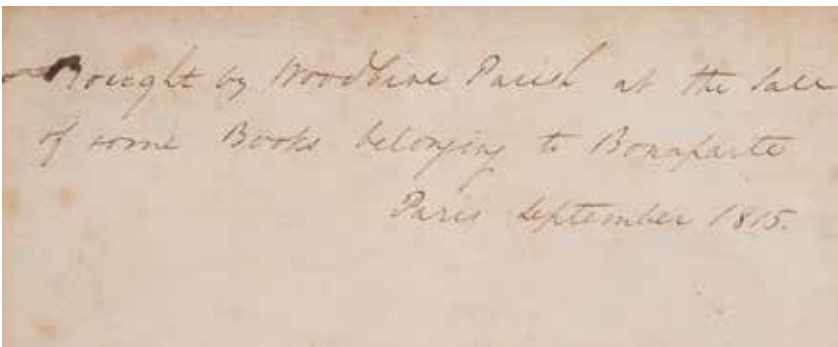 Bought by Woodbine Parish at the Sale
of some Books belonging to Bonaparte
Paris September 1815.